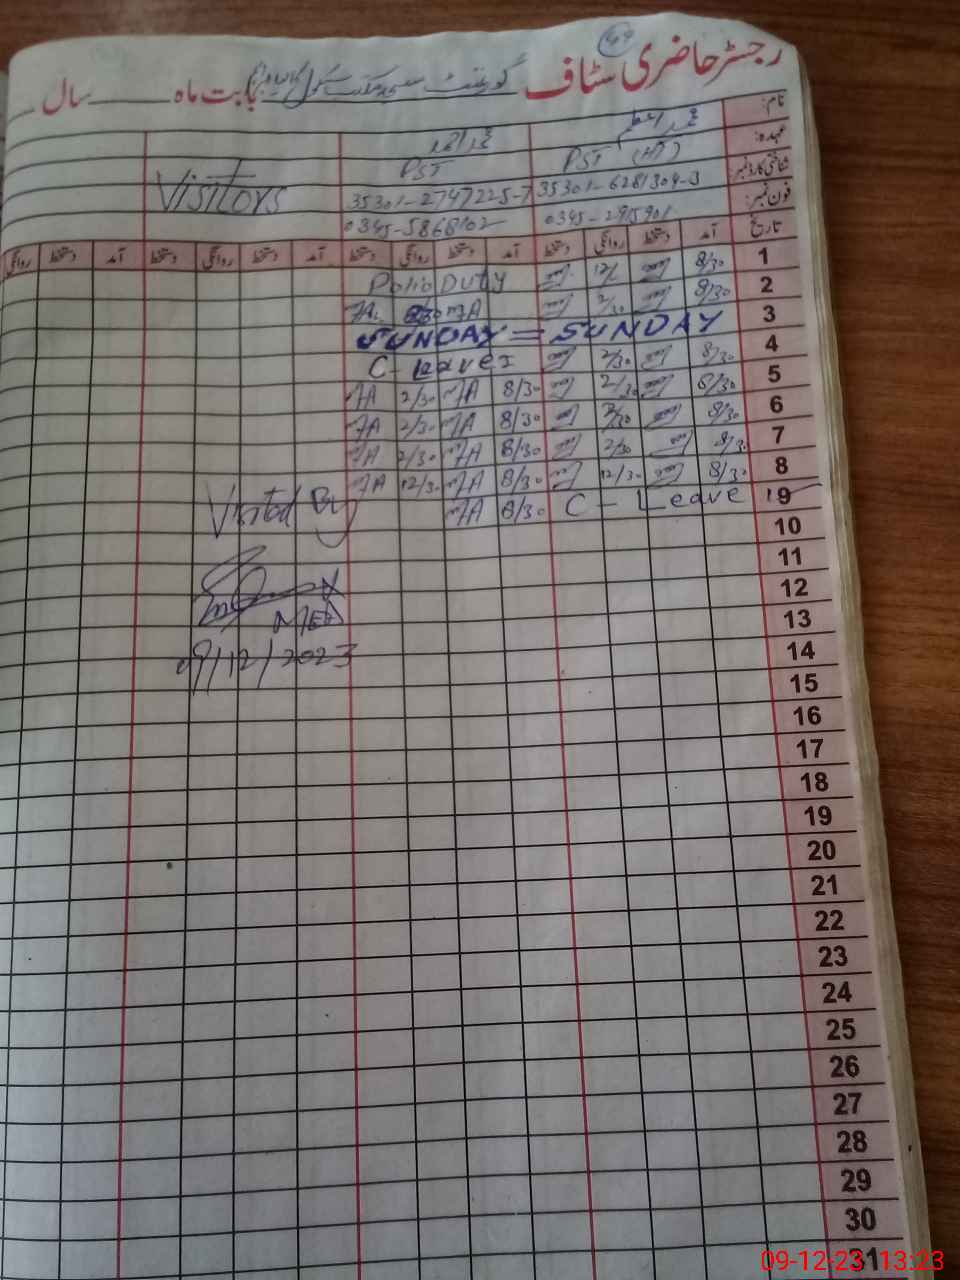 44
رجسٹر حاضری سٹاف گورنمنٹ مسجد مکتب سکول بابت ماہ سال
نام:
عہدہ: PST (HT) PST Visitors
شناختی کارڈ نمبر: 35301-6281304-3 35301-2747225-7
فون نمبر: 0345-2915901 0345-5868102
تاریخ آمد دستخط روانگی دستخط آمد دستخط روانگی دستخط آمد دستخط روانگی دستخط آمد دستخط روانگی
1 8/30 12/ Polio Duty
2 8/30 2/30 MA 2/30 MA
3 SUNDAY = SUNDAY
4 8/30 2/30 C- Leave
5 8/30 2/30 8/30 MA 2/30 MA
6 8/30 2/30 8/30 MA 2/30 MA
7 8/30 2/30 8/30 MA 2/30 MA
8 8/30 12/30 8/30 MA 12/30 MA
9 C - Leave 8/30 MA Visited By
10
11
12
13 MEA
14 09/12/2023
15
16
17
18
19
20
21
22
23
24
25
26
27
28
29
30
31
09-12-23 13:23